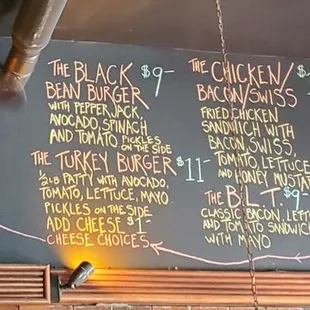 THE BLACK $9-
BEAN BURGER
WITH PEPPERJACK,
AVOCADO, SPINACH
AND TOMATO PICKLES
ON THE SIDE
THE TURKEY BURGER $11-
1/2 LB PATTY WITH AVOCADO,
TOMATO, LETTUCE, MAYO
PICKLES ON THE SIDE
ADD CHEESE $1
CHEESE CHOICES
THE CHICKEN/
BACON/SWISS
FRIED CHICKEN
SANDWICH WITH
BACON, SWISS,
TOMATO, LETTUCE
AND HONEY MUSTA
THE B.L.T. $9
CLASSIC BACON, LETT
AND TOMATO SANDWIC
WITH MAYO